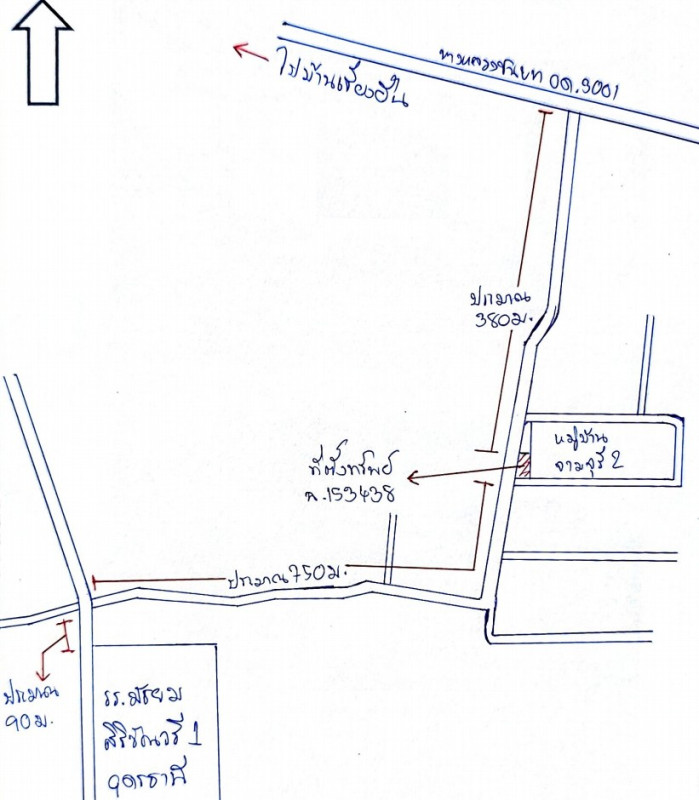 ทางหลวงชนบท อด.3001
ไปบ้านเชียงยืน
ประมาณ
380ม.
หมู่บ้าน
จามจุรี 2
ที่ตั้งทรัพย์
ฉ.153438
ประมาณ 750ม.
ประมาณ
90ม.
รร.มัธยม
สิริวัณวรี 1
อุดรธานี